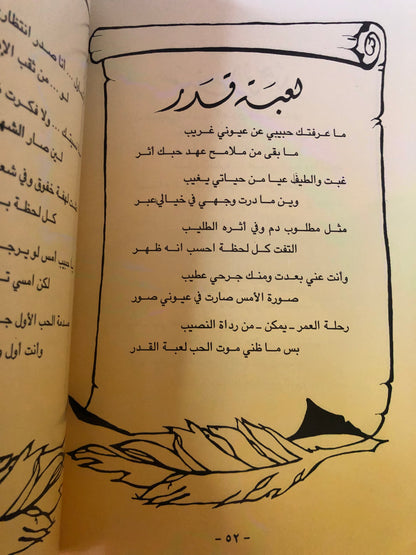 لعبة قدر
ما عرفتك حبيبي عن عيوني غريب
ما بقى من ملامح عهد حبك اثر
غبت والطيف عيا من حياتي يغيب
وين ما درت وجهي في خيالي عبر
مثل مطلوب دم وفي أثره الطليب
التفت كل لحظة احسب انه ظهر
وأنت عني بعدت ومنك جرحي عطيب
صورة الأمس صارت في عيوني صور
رحلة العمر ـ يمكن ـ من رداة النصيب
بس ما ظني موت الحب لعبة القدر
- ٥٢ -
أنا صدر انتظاري
لو ... من ثقب الإ
ولا فكرت
لين صار الشه
لهفة خفوق وفي شع
كل لحظة ب
حبيب امس لو يرج
لكن أمسي ت
صدمة الحب الأول ج
وأنت أول و